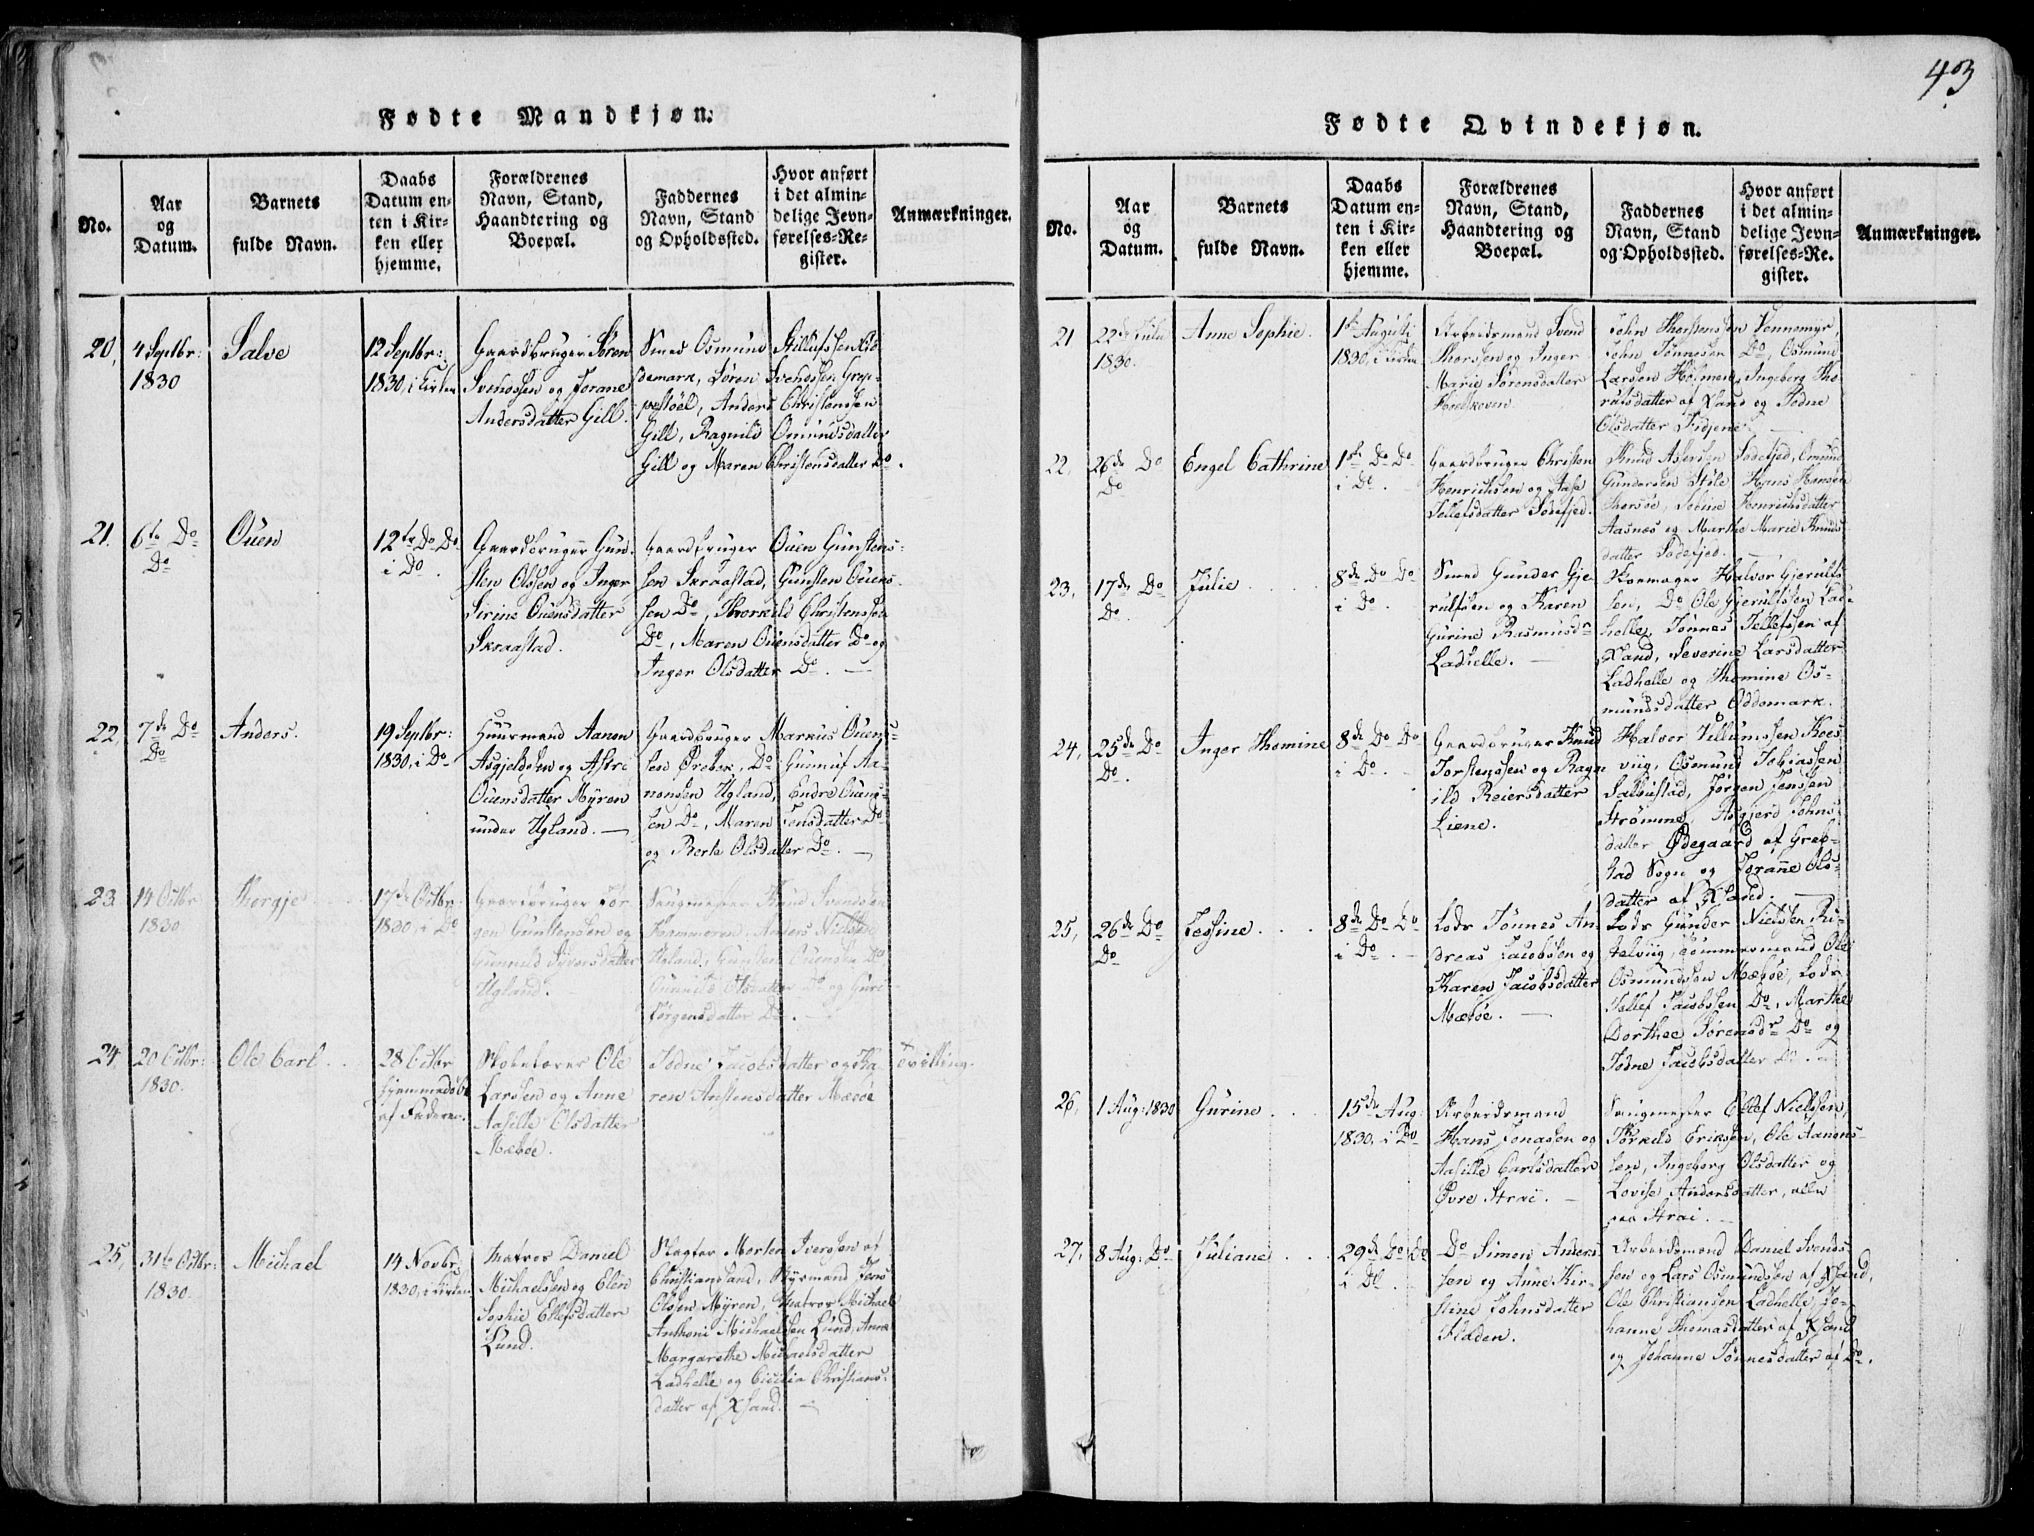 43
Fødte Mandkjøn.
No.
Aar
og
Datum.
Barnets
fulde Navn.
Daabs
Datum en-
ten i Kir-
ken eller
hjemme.
Forældrenes
Navn, Stand,
Haandtering og
Boepæl.
Faddernes
Navn, Stand
og Opholdssted.
Hvor anført
i det almin-
delige Jevn-
førelses-Re-
gister.
Anmærkninger.
20,
4 Septbr:
1830
Salve
12 Septbr:
1830, i Kirken
Gaardbruger Søren
Svenssen og Jorane
Andersdatter Gill.
Smed Osmund Gillufsen Ød-
demark, Søren Svenssen Grop-
pestøel, Anders Christenssen
Gill, Ragnild Omundsdatter
Gill og Maren Christensdatter Do.
21.
6te Do
Do
Ouen
12te Do Do
i Do.
Gaardbruger Gun-
sten Olssen og Inger
Sirine Ouensdatter
Skraastad.
Gaardbruger Ouen Gunstens-
sen Skraastad, Gunsten Ouens-
sen Do, Thorkild Christenssen
Do, Maren Ouensdatter Do og
Inger Olsdatter Do.
22,
7de Do
Do
Anders.
19 Septbr:
1830, i Do
Huusmand Aanen
Asgjeldsen og Astri
Ouensdatter Myren
under Ugland.
Gaardbruger Markus Ouens-
senØrebek, Do Gunnuf Aa-
nonsen Ugland, Endre Ouens-
sen Do, Maren Jensdatter Do
og Berte Olsdatter Do.
23.
14 Octbr
1830
Thorgje
17de Octbr.
1830, i Do
Gaardbruger Jør-
gen Gunstensen og
Gunnild Syversdatter
Ugland.
Saugmester Knud Svendsen
Hammeren, Anders Nielsen
Ugland, Gunsten Ouensen Do
Gunnild Olsdatter Do og Guri
Jørgensdatter Do.
24,
20 Octbr:
1830.
Ole Carl
28 Octbr
hjemmedøbt
af Faderen.
Skolelærer Ole
Larssen og Anne
Aasille Olsdatter
Mæbøe.
Todne Jacobsdatter og Ka-
ren Anstensdatter Mæbøe
Tvilling.
25,
31te Octbr:
1830.
Michael
14 Novbr:
1830, i Kirken
Matros Daniel
Michaelsen og Elen
Sophie Ellefsdatter
Lund.
Slagter Morten Iversen af
Christiansand, Styrmand Jens
Olsen Myren, Matros Michael
Anthoni Michaelsen Lund, Anne
Margarethe Michaelsdatter
Ladhelle og Cicilia Christians-
datter af Xsand.
Fødte Qvindekjøn.
No.
Aar
og
Datum.
Barnets
fulde Navn.
Daabs
Datum en-
ten i Kir-
ken eller
hjemme.
Forældrenes
Navn, Stand,
Haandtering og
Boepæl.
Faddernes
Navn, Stand
og Opholdssted.
Hvor anført
i det almin-
delige Jevn-
førelses-Re-
gister.
Anmærkninger.
21
22de Julii
1830.
Anne Sophie.
1ste Augusti
1830, i Kirken
Arbeidsmand Svend
Thorssen og Inger
Marie Sørensdatter
John Thorstenssen Vennemyr,
John Tønnesen Do, Osmund
Larssen Holmen, Ingeborg Tho-
raldsdatter af Xsand og Todne
Olsdatter Fidjene.
22,
26de Do
Do
Engel Cathrine
1ste Do Do
i Do.
Gaardbruger Christen
Henrichsen og Aase
Tellefsdatter Sødefjed.
Knud Assersen Sødefjed, Omund
Gundersen Støle, Hans Hansen
Thorsøe, Sobine Henrichsdatter
Aasnes og Marthe Marie Knuds-
datter Sødefjed.
23,
17de Do
Do.
Julie
8de Do Do
i Do.
Smed Gunder Gje-
rulfsen og Karen
Gurine Rasmusdr
Ladhelle.
Skomager Halvor Gjerulf-
sen, Do Ole Gjerulfsen Lad-
helle, Tønnes Tellefsen af
Xsand, Severine Larsdatter
Ladhelle og Thomine Os-
mundsdatter Oddemark.
24,
25de Do
Do.
Inger Thomine
8de Do Do
i Do.
Gaardbruger Knud
Torstenssen og Ragn-
ild Reiersdatter
Liene.
Halvor Tellumssen Koes-
viig, Osmund Tobiassen
Salbustad, Jørgen Jenssen
Strømme, Asgjerd Johns-
datter Ødegaard af Greb-
stad Sogn og Jorane Ols-
datter af Xsand.
25,
26de Do
Do
Jessine
8de Do Do
i Do.
Lods Tønnes An-
dreas Jacobsen og
Karen Jacobsdatter
Mæbøe.
Lods Gunder Nielsen Ku-
talviig, Tømmermand Ole
Osmundsen Mæbøe, Lods
Tellef Jacobssen Do, Marthe
Dorthee Sørensdr Do og
Todne Jacobsdatter Do.
26,
1 Aug: 1830
Gurine
15de Aug:
1830, i Do
Arbeidsmand
Hans Jonassen og
Aasille Carlsdatter
Øvre Strai.
Saugmester Ellef Nielssen,
Torkild Eriksen, Ole Aanons-
sen, Ingeborg Olsdatter og
Lovise Andersdatter, alle
paa Strai.
27,
8 Aug: Do
Juliane
29de Do Do
i Do
Do Simon Anders-
sen og Anne Kir-
stine Johnsdatter
Fladen.
Arbeidsmand Daniel Svends-
sen og Lars Osmundsen af Xsand,
Ole Christiansen Ladhelle, Jo-
hanne Thomasdatter af Xsand
og Johanne Tønnesdatter af Do.